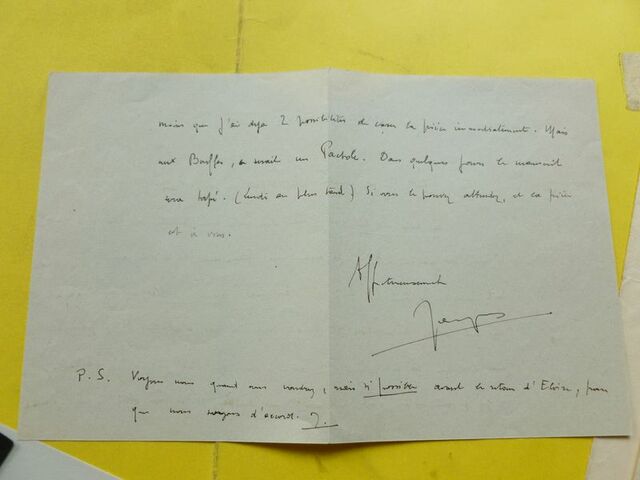 moins que j'ai déjà 2 possibilités de caser la pièce immédiatement. Mais
aux Bouffes, ce serait un Pactole. Dans quelques jours le manuscrit
sera tapé. (lundi au plus tard) Si vous le pouvez attendez, et la pièce
est à vous.
Affectueusement
P.S. Voyons nous quand vous voudrez, mais si possible avant le retour d'Eloïse, pour
que nous soyons d'accord. J.